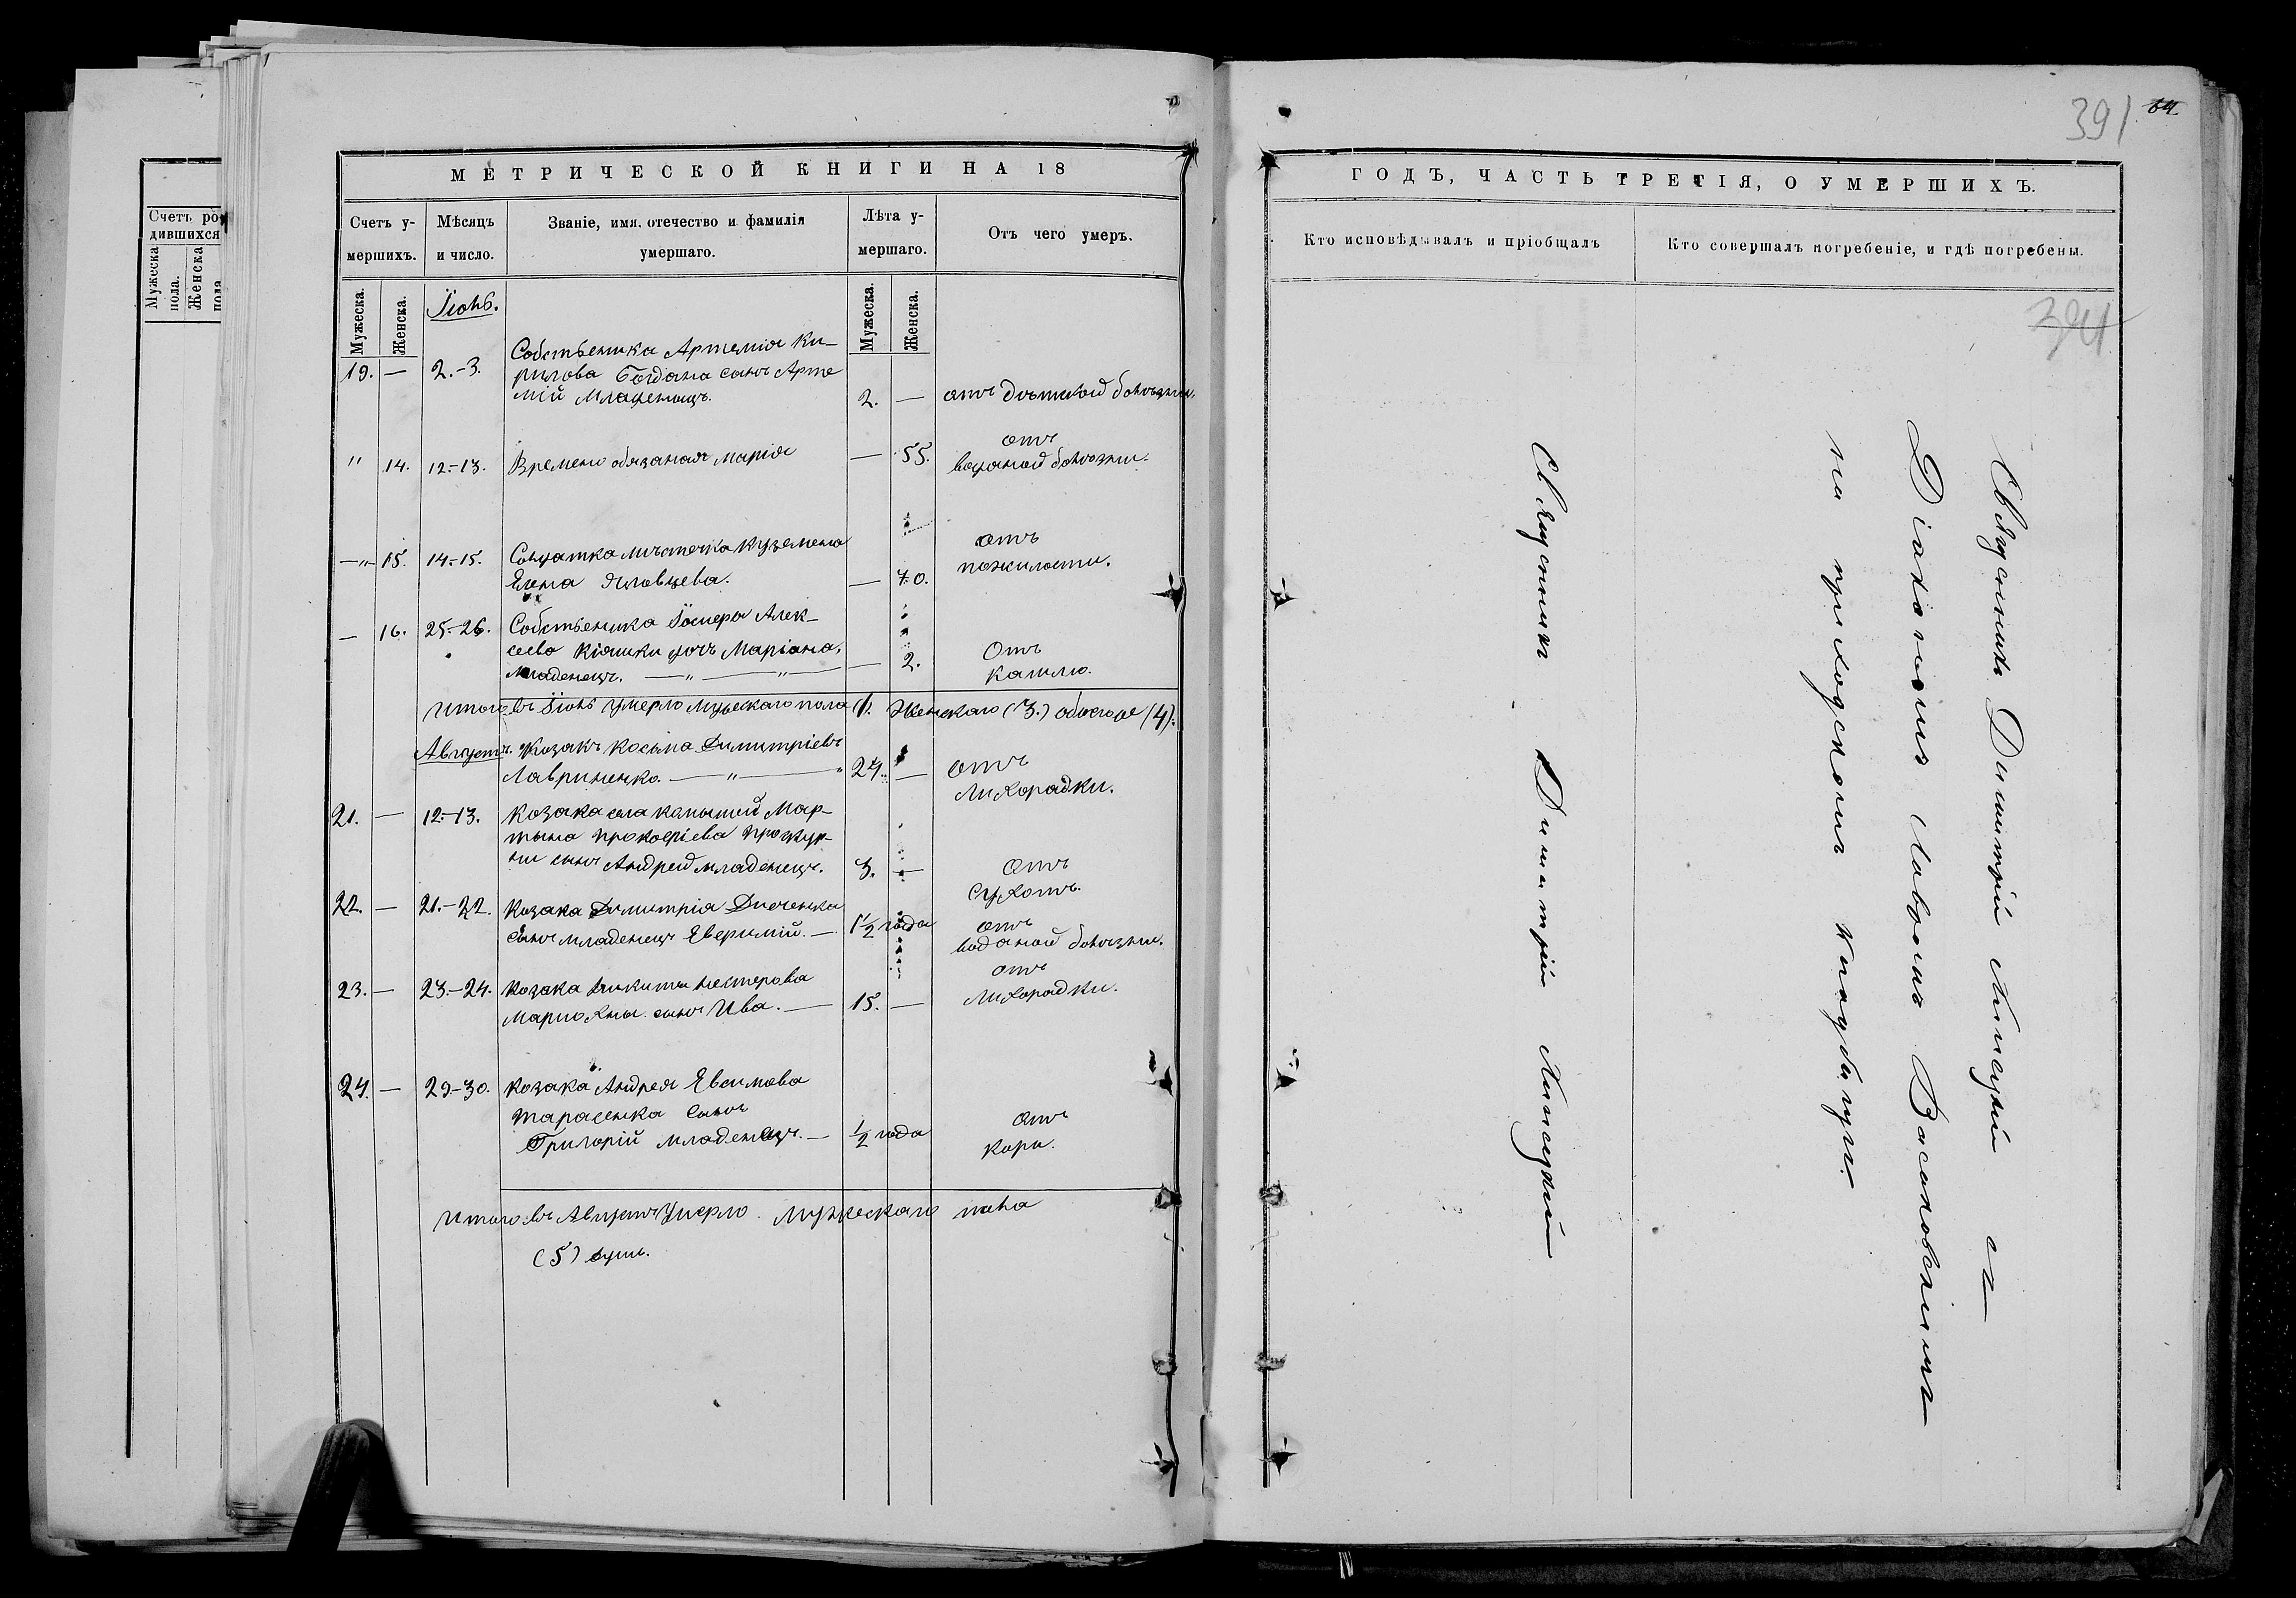 Счетъ ро
дившихся
Мужеска
пола.
Женска
пола
МЕТРИЧЕСКОЙ КНИГИ НА 18
Счетъ у-
мершихъ.
Мѣсяцъ
и число.
Званіе, имя, отечество и фамилія
умершаго.
Лѣта у-
мершаго.
Отъ чего умеръ.
Мужеска.
Женска.
Мужеска.
Женска.
Іюль.
19. — 2.-3.
Собственика Артемія Ки-
рилова Богдана сынъ Арте
мій Младенецъ. 2. — отъ дѣтской болѣзни.
" 14. 12.-13. Времено обязаная Марія — 55. отъ
водяной болѣзни.
—"— 15. 14.-15. Солдатка мѣстечка
Елена Яловцева. — 70.
отъ
пожилости.
— 16. 25.-26. Собственика Алек-
сѣева дочь Маріана,
Младенецъ. —"—"— — 2.
Отъ
кашлю.
Итого въ Іюлѣ умерло Мужескаго пола (1. Женскаго (3.) обоего (4).
Августъ. Козакъ Косьма Димитріевъ
Лавриненко. —"—" 24. —
отъ
Лихорадки.
21. — 12.-13. Козака села Мар-
тына Прокофіева
сынъ Андрей младенецъ. 3. —
Отъ
Сухотъ.
22. — 21.-22. Козака Димитрія
сынъ младенецъ Евфимій. — 1½ года
отъ
водяной болѣзни.
23. — 23.-24. Козака Никиты Нестерова
сынъ Ива. — 15. —
отъ
Лихорадки.
24. — 29.-30. Козака Андрея Евфимова
Тарасенка сынъ
Григорій младенецъ. — ½ года
Отъ
кори.
Итого въ Августѣ Умерло Мужескаго пола
(5) душъ.
391 64
ГОДЪ, ЧАСТЬ ТРЕТІЯ, О УМЕРШИХЪ.
Кто исповѣдывалъ и пріобщалъ
Кто совершалъ погребеніе, и гдѣ погребены.
394
Священникъ Димитрій Липскій
Священникъ Димитрій Липскій съ
Діакономъ Лавромъ Василовскимъ
на приходскомъ кладбищѣ.